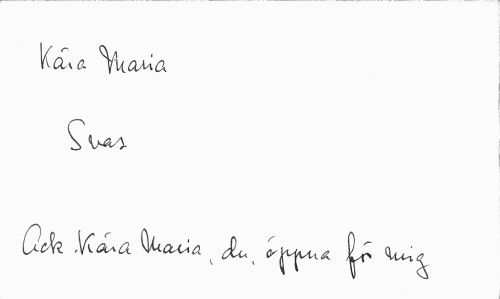 Kära Maria
Svar
Ack Kära Maria, du, öppna för mig